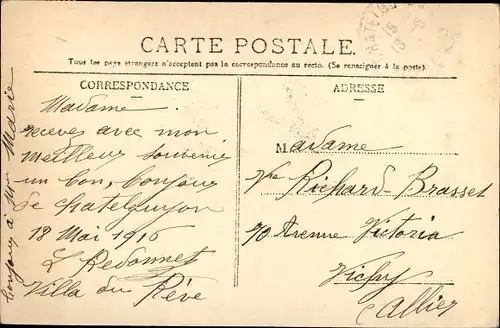 CARTE POSTALE.
Tous les pays étrangers n'acceptent pas la correspondance au recto. (Se renseigner à la poste).
CORRESPONDANCE
Madame
recevez avec mon
meilleur souvenir
un bon, bonjour
de chatelguyon
18 Mai 1916
L Redonnet
Villa du Rêve
bonjour à Marie
ADRESSE
Madame
Richard-Brasset
70 Avenue Victoria
Vichy
Allier